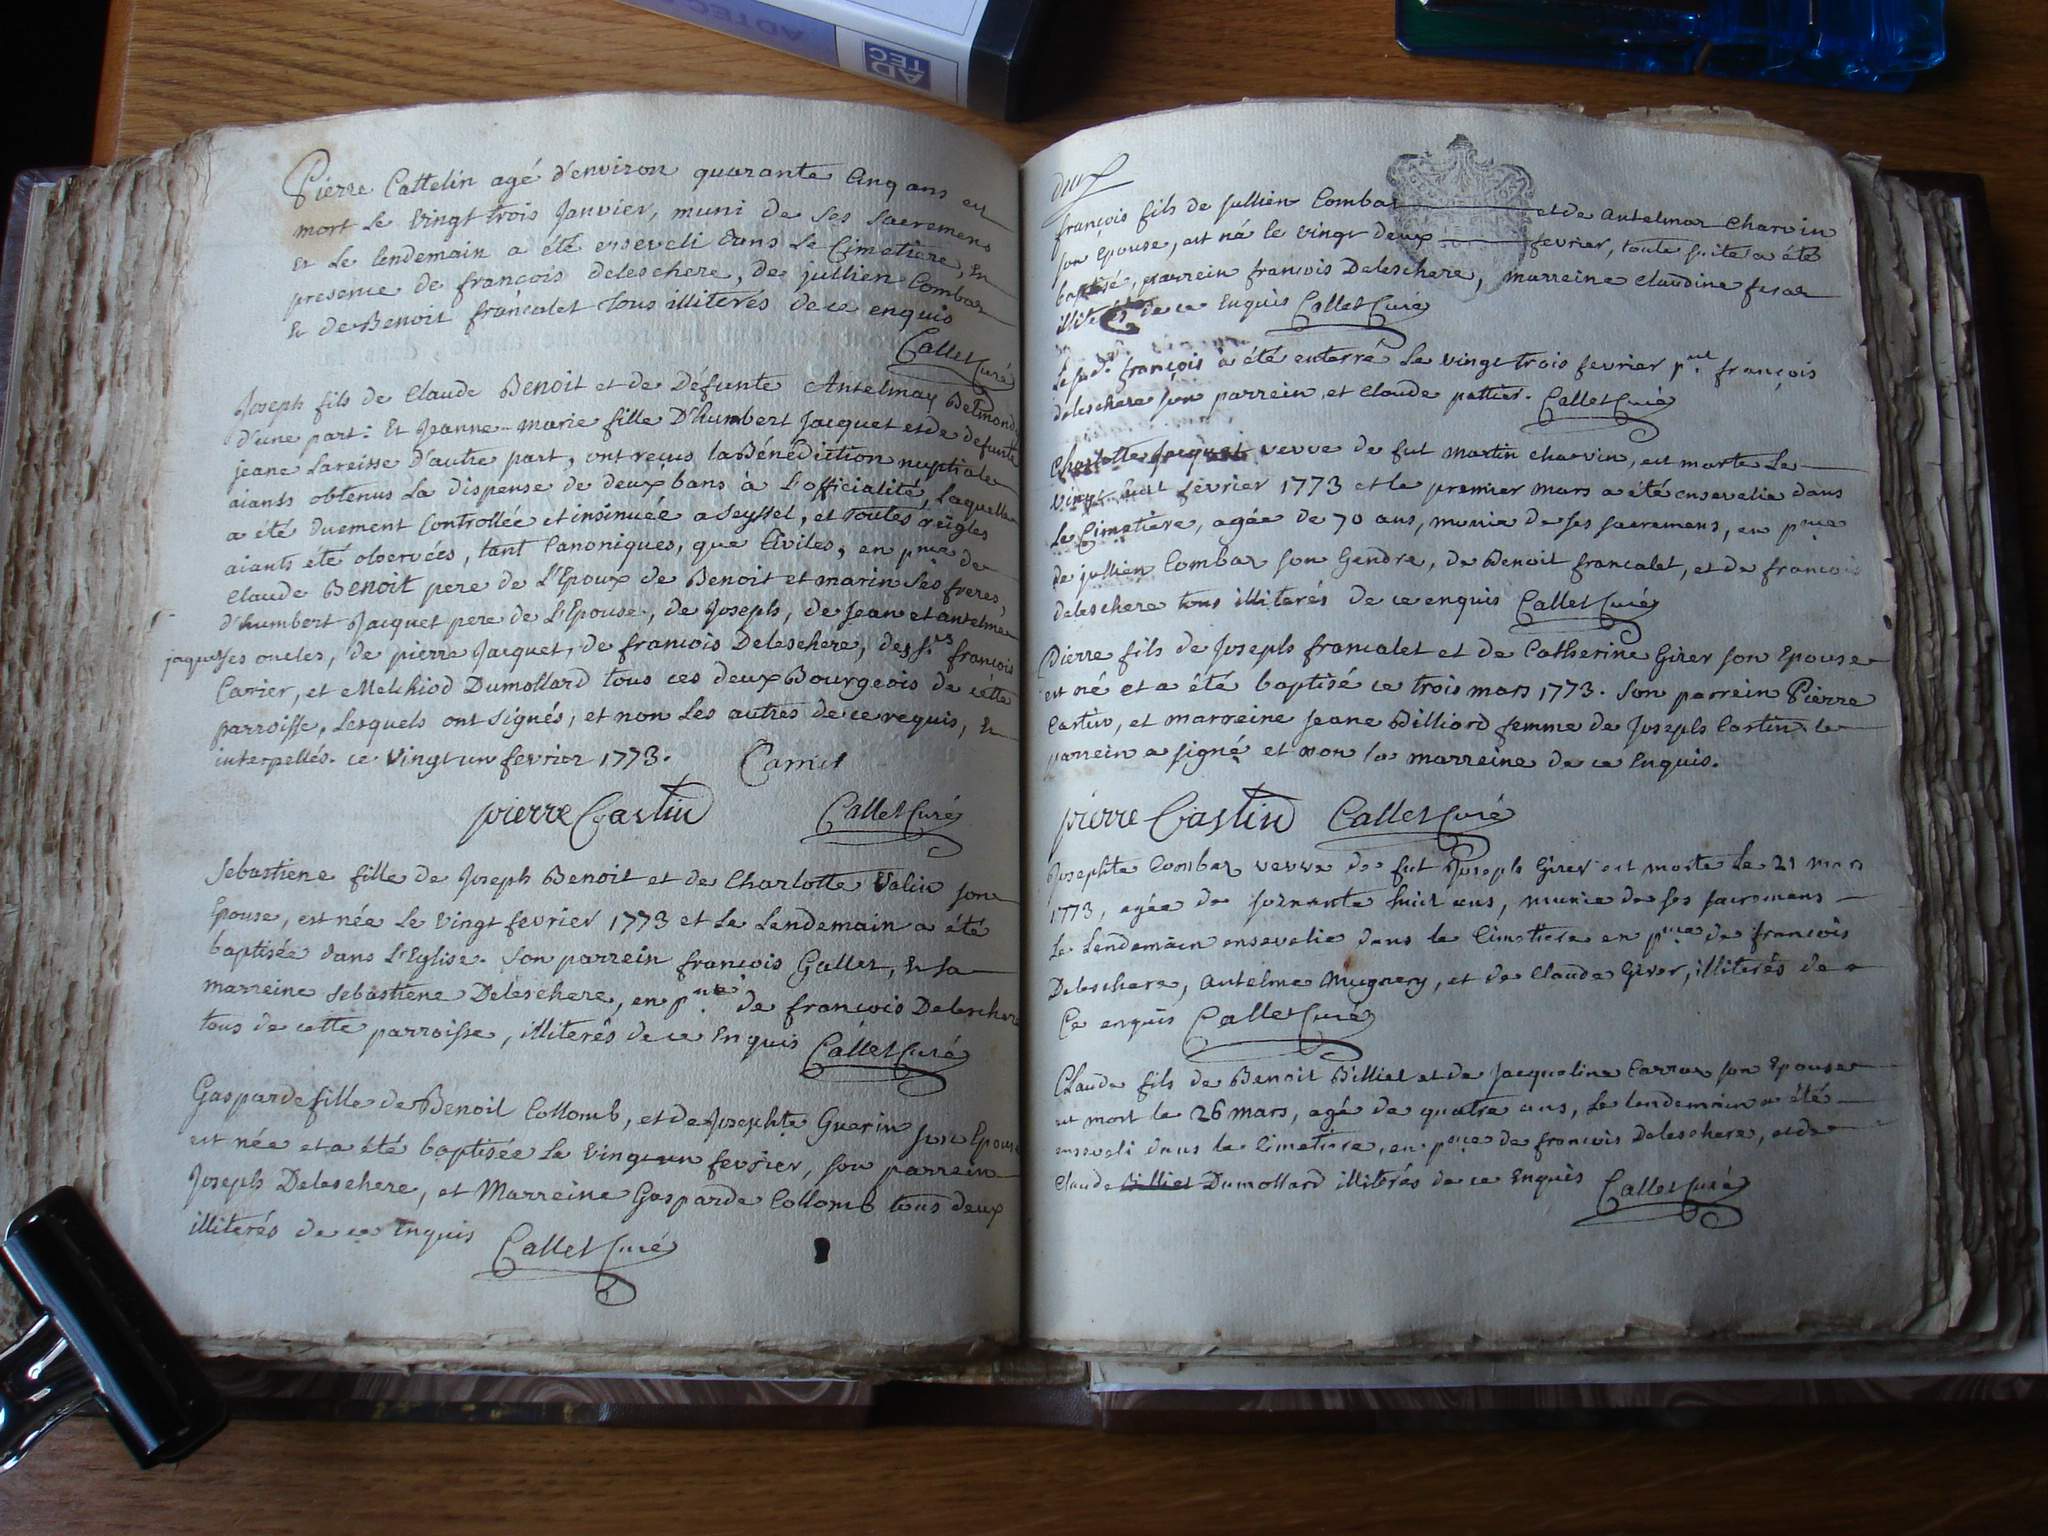 ADTEC
AD
TEC
Pierre Cattelin agé d'environ quarante Cinq ans est
mort le vingt trois Janvier, muni de ses Sacremens
Et Le lendemain a été enseveli dans Le Cimetière, En
presence de françois deleschere, de jullien Combaz
Et de Benoit françalet tous illiterés de ce enquis
Callet Curé
Joseph fils de Claude Benoit et de Défunte Antelmaz Belmond
d'une part: Et Jeanne-marie fille D'humbert Jacquet et de defunte
jeane Lareisse D'autre part, ont reçus la Bénédiction nuptiale
aiants obtenus La dispense de deux bans à L'officialité, Laquelle
a été Duement Controllée et insinuée a Seyssel, et toutes reigles
aiants été observées, tant Canoniques, que Civiles, en pnce de
Claude Benoit pere de L'Epoux de Benoit et marin Ses freres,
d'humbert Jacquet pere de L'Epouse, de Joseph, de Jean et antelme
jaquet ses oncles, de pierre Jacquet, de françois Deleschere, des Srs françois
Carier, et Melchiod Dumollard tous ces deux Bourgeois de cette
parroisse, Lesquels ont Signés, et non Les autres de ce requis, Et
interpellés. ce Vingt un fevrier 1773. Carrier
pierre Castin Callet Curé
Sebastiene fille de Joseph Benoit et de Charlotte Valin son
Epouse, est née Le vingt fevrier 1773 et Le Lendemain a été
baptisée dans L'Eglise. Son parrein françois Gallet, Et sa
marreine Sebastiene Deleschere, en pnce de françois Deleschere
tous de cette parroisse, illiterés de ce Enquis Callet Curé
Gasparde fille de Benoit Collomb, et de Josephte Guerin son Epouse
est née et a été baptisée Le vingt un fevrier, son parrein
Joseph Deleschere, et Marreine Gasparde Collomb tous deux
illiterés de ce Enquis Callet Curé
deux
françois fils de Jullien Combaz et de Antelmaz Charvin
son Epouse, est né le vingt deux fevrier, toute suite a été
baptisé, parrein françois Deleschere, marreine Claudine
illiterés de ce Enquis Callet Curé
Le sudt françois a été enterré Le vingt trois fevrier pnt françois
deleschere son parrein et Claude Callet Curé
Charlotte Jacquet veuve de fut Martin charvin, est morte Le
vingt huit fevrier 1773 et le premier mars a été ensevelie dans
Le Cimetière, agée de 70 ans, munie de ses sacremens, en pnce
de jullien Combaz son Gendre, de Benoit francalet, et de françois
deleschere tous illiterés de ce enquis Callet Curé
Pierre fils de Joseph francalet et de Catherine Girer son Epouse
est né et a été baptisé ce trois mars 1773. Son parrein Pierre
Castin, et marreine Jeane Billiord femme de Joseph Castin le
parrein a signé et non la marreine de ce Enquis.
pierre Castin Callet Curé
Josephte Combaz veuve de fut Joseph Girer est morte Le 21 mars
1773, agée de soixante huit ans, munie de ses sacremens
Le Lendemain ensevelie dans le Cimetiere en pnce de françois
Deleschere, Antelme Mugnery, et de Claude Girer, illiterés de
Ce enquis Callet Curé
Claude fils de Benoit Billiet et de Jacqueline Carraz son Epouse
est mort le 26 mars, agé de quatre ans, Le lendemain a été
enseveli dans le Cimetiere, en pnce de françois Deleschere, et de
Claude Billiet Dumollard illiterés de ce Enquis Callet Curé